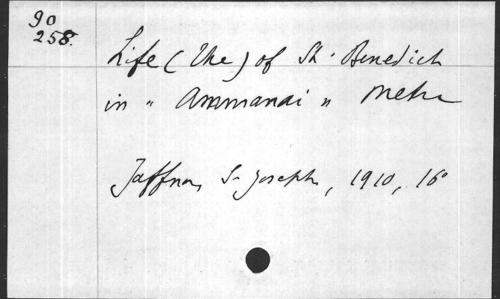 90
258.
Life (The) of St. Benedict
in " Ammanai " Metre
Jaffna, S. Joseph, 1910, 16°